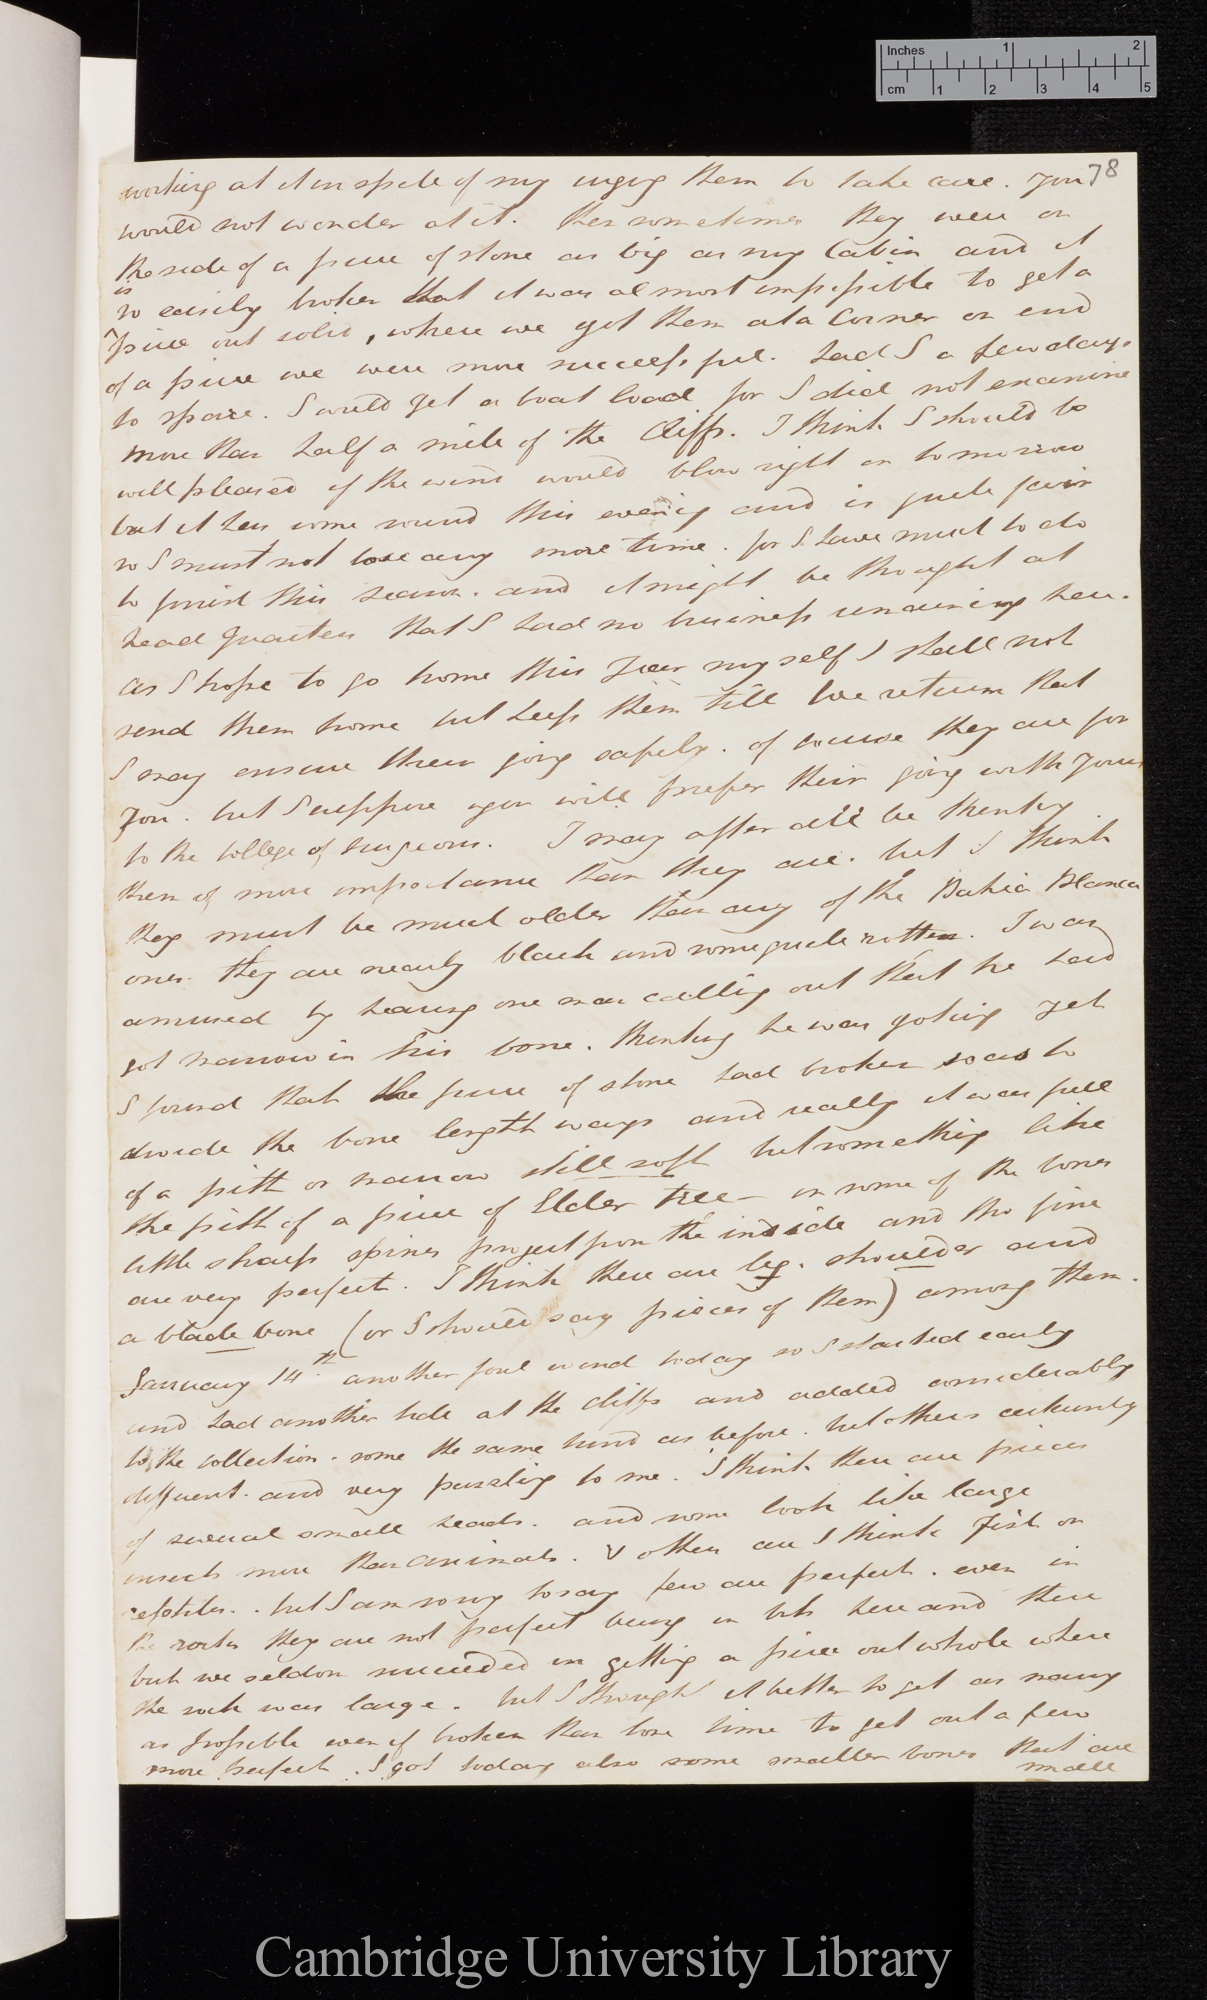 Inches 1 2
cm 1 2 3 4 5
78
working at it in spite of my urging them to take care. You
would not wonder at it. then sometimes they were on
the side of a piece of stone as big as my Cabin and it
is
so easily broken that it was almost impossible to get a
piece out solid, where we got them at a Corner or end
of a piece we were more successful. had I a few days
to spare. I could get a boat load for I did not examine
more than half a mile of the Cliffs. I think I should be
well pleased if the wind would blow right on tomorrow
but it has come round this evening and is quite fair
so I must not lose any more time. for I have much to do
to finish this season. and it might be thought at
head Quarters that I had no business remaining here.
as I hope to go home this Year myself I shall not
send them home but keep them till we return that
I may ensure them going safely. of course they are for
You. but I suppose you will prefer their going with Yours
to the College of Surgeons. I may after all be thinking
them of more importance than they are. but I think
they must be much older than any of the Bahia Blanca
ones. they are nearly black and some quite rotten. I was
amused by hearing one man calling out that he had
got marrow in his bone. thinking he was joking yet
I found that the piece of stone had broken so as to
divide the bone length ways and really it was full
of a pith or marrow still soft but something like
the pith of a piece of Elder tree – in some of the bones
little sharp spines project from the inside and tho fine
are very perfect. I think there are leg. shoulder and
a blade bone (or I should say pieces of them) among them.
January 14th. another foul wind today so I started early
and had another tide at the cliffs and added considerably
to the collection. some the same kind as before. but others certainly
different. and very puzzling to me. I think there are pieces
of several small heads. and some look like large
insects more than animals. & others are I think Fish or
reptiles. but I am sorry to say few are perfect. even in
the rocks they are not perfect being in bits here and there
but we seldom succeeded in getting a piece out whole where
the rock was large. but I thought it better to get as many
as possible even if broken than lose time to get out a few
more perfect. I got today also some smaller bones that are
small
Cambridge University Library